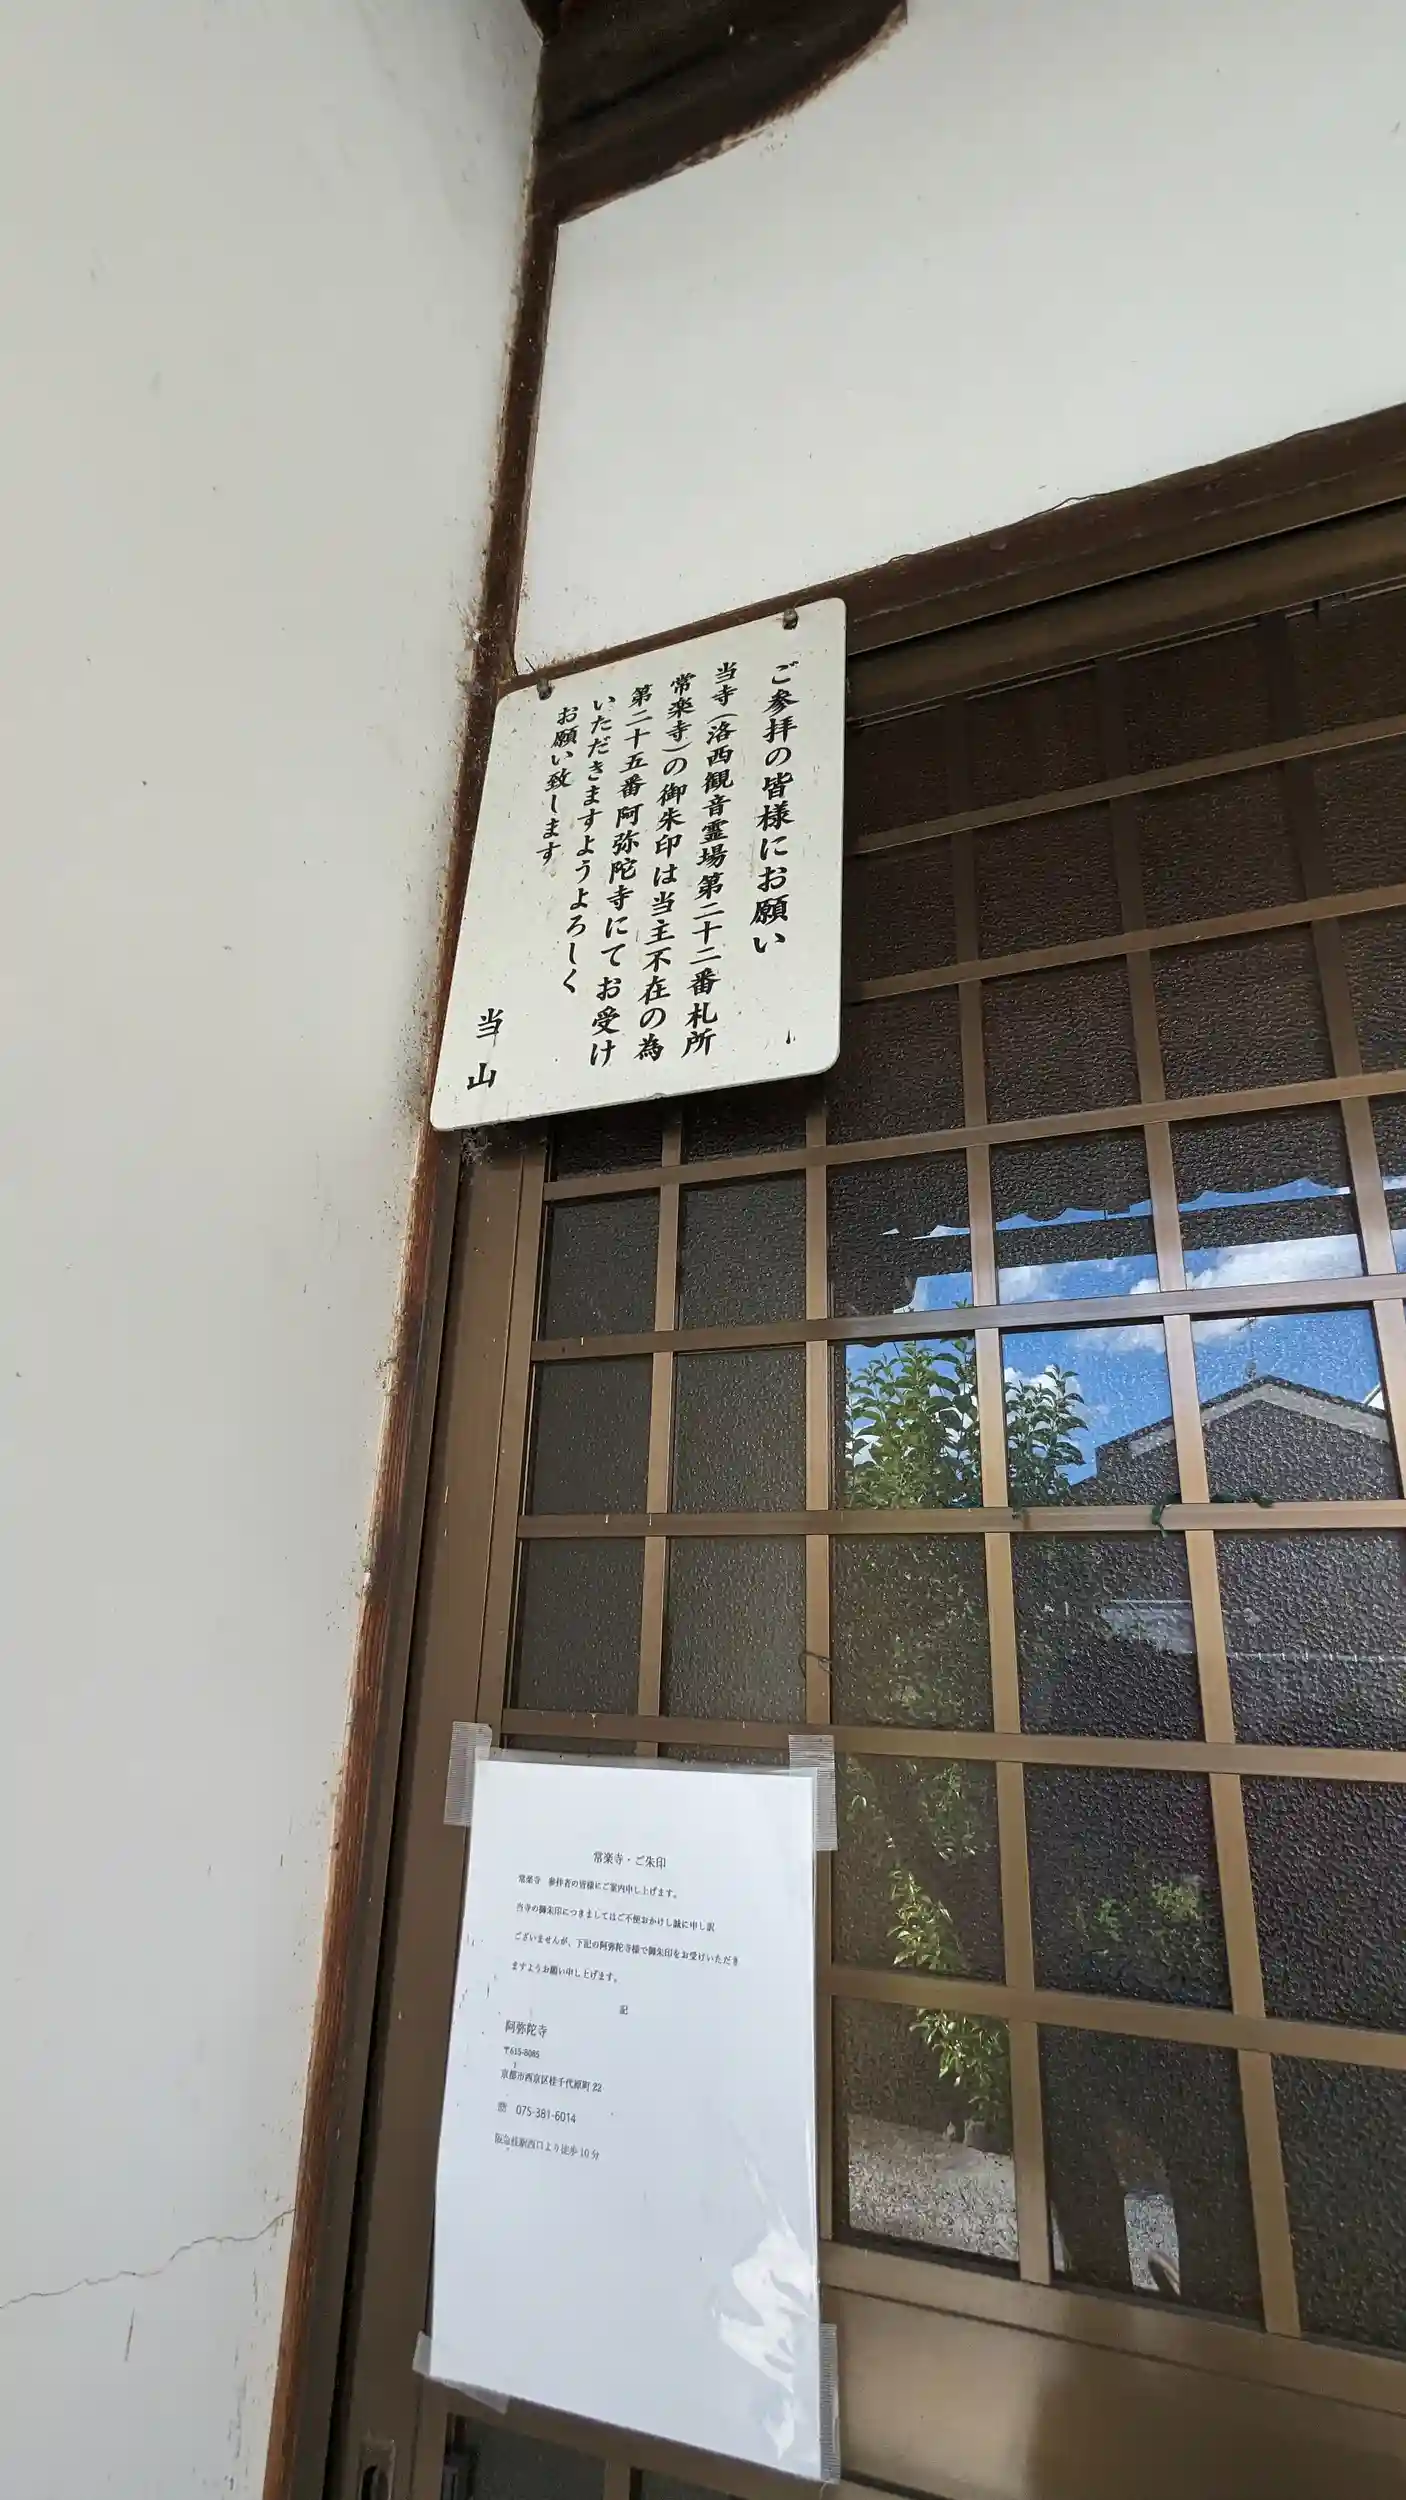 ご参拝の皆様にお願い
当寺(洛西観音霊場第二十二番札所
常楽寺)の御朱印は当主不在の為
第二十五番阿弥陀寺にてお受け
いただきますようよろしく
お願い致します
当山
常楽寺・ご朱印
常楽寺 参拝者の皆様にご案内申し上げます。
当寺の御朱印につきましてはご不便おかけし誠に申し訳
ございませんが、下記の阿弥陀寺様で御朱印をお受けいただき
ますようお願い申し上げます。
記
阿弥陀寺
〒615-8085
京都市西京区桂千代原町 22
☏ 075-381-6014
阪急桂駅西口より徒歩 10 分